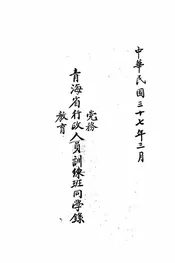 中華民國三十七年三月
青海省行政人員訓練班同學錄
党務
教育